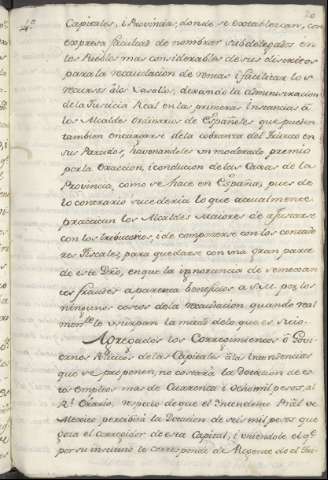 Capitales, i Provincia, donde se establezcan, con
expresa facultad de nombrar subdelegados en
los Pueblos mas considerables de sus distritos
para la recaudacion de rentas i facilitar los
recursos à los Vasallos, dexando la administracion
dela Justicia Real en las primeras Instancias à
los Alcaldes Ordinarios de Españoles que pueden
tambien encargarse dela cobranza del Tributo en
sus Partidos, havonandoles un moderado premio
por la exaccion, i conducion de las de la
Provincia, como se hace en España, pues de
lo contrario sucederia lo que actualmente
practican los Alcaldes Maiores de ajustarse
con los tributarios, i de componerse con los contado
res Fiscales, para quedarse con una gran parte
de este Dro, en que la ignorancia de semejan
tes fraudes aparenta beneficios à S.M. por los
ningunos costos dela recaudacion, quando real
mente le usurpan la mitad delo que es suio.
Agregados los Corregimientos ò Gov
iernos de las Capitales à las Intendencias
que se proponen, no costarà la Dotacion de es
tos Empleos mas de quarenta i ocho mil pesos, al
Rl. Erario, respecto de que el Intendente Gral de
Mexico percibirà la Dotacion de seis mil pesos que
goza el corregidor de esta Capital, i uniendole el qe.
por su instituto le corresponde de Regente de el Tri